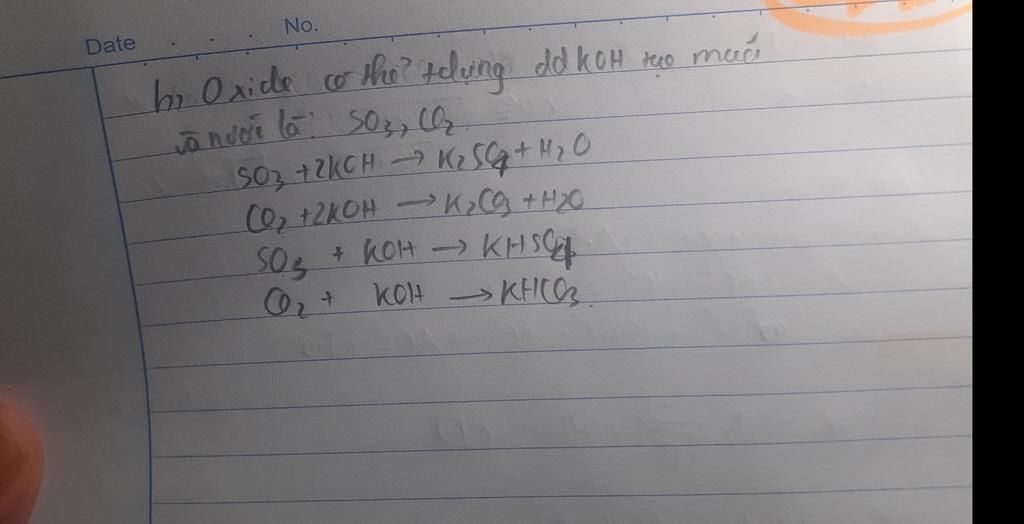 Date No.
b, Oxide có thể tdụng dd KOH tạo muối
và nước là: SO3, CO2
SO3 + 2KOH → K2SO4 + H2O
CO2 + 2KOH → K2CO3 + H2O
SO3 + KOH → KHSO4
CO2 + KOH → KHCO3.